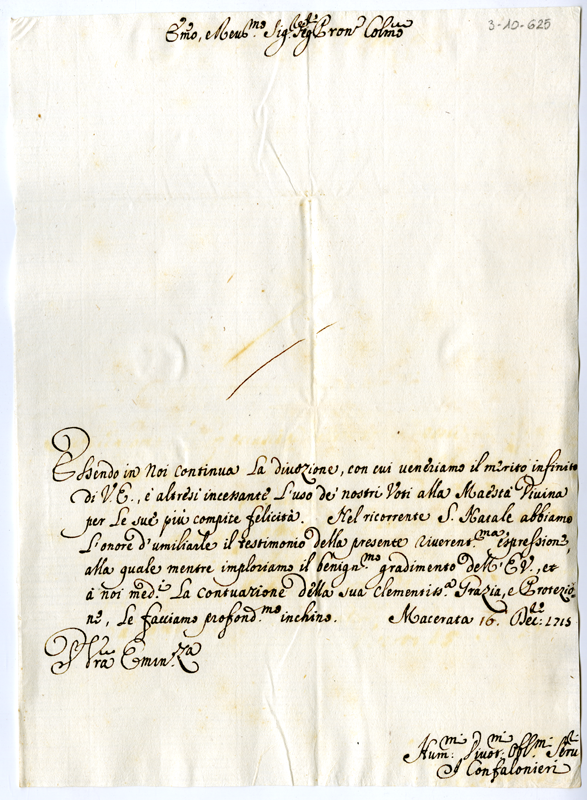 3-10-625
Emo, e Reu.mo Sig.re Sig.re Pron Colmo
Essendo in Noi continua La diuozione, con cui veneriamo il merito infinito
di V.E., è altresi incessante L'uso de' nostri Voti alla Maestà Diuina
per Le sue più compite felicità. Nel ricorrente S. Natale abbiamo
L'onore d'umiliarle il testimonio della presente riuerent.ma espressione,
alla quale mentre imploriamo il benign.mo gradimento dell' E.V., et
à noi med.i La contuazione della sua Clementiss.a Grazia, e Protezio-
ne, Le facciamo profond.mo inchino. Macerata 16. Dec.re 1715
D. Vra Emin.za
Hum.mi Diuot.mi Obl.mi Seru.ri
I Confalonieri